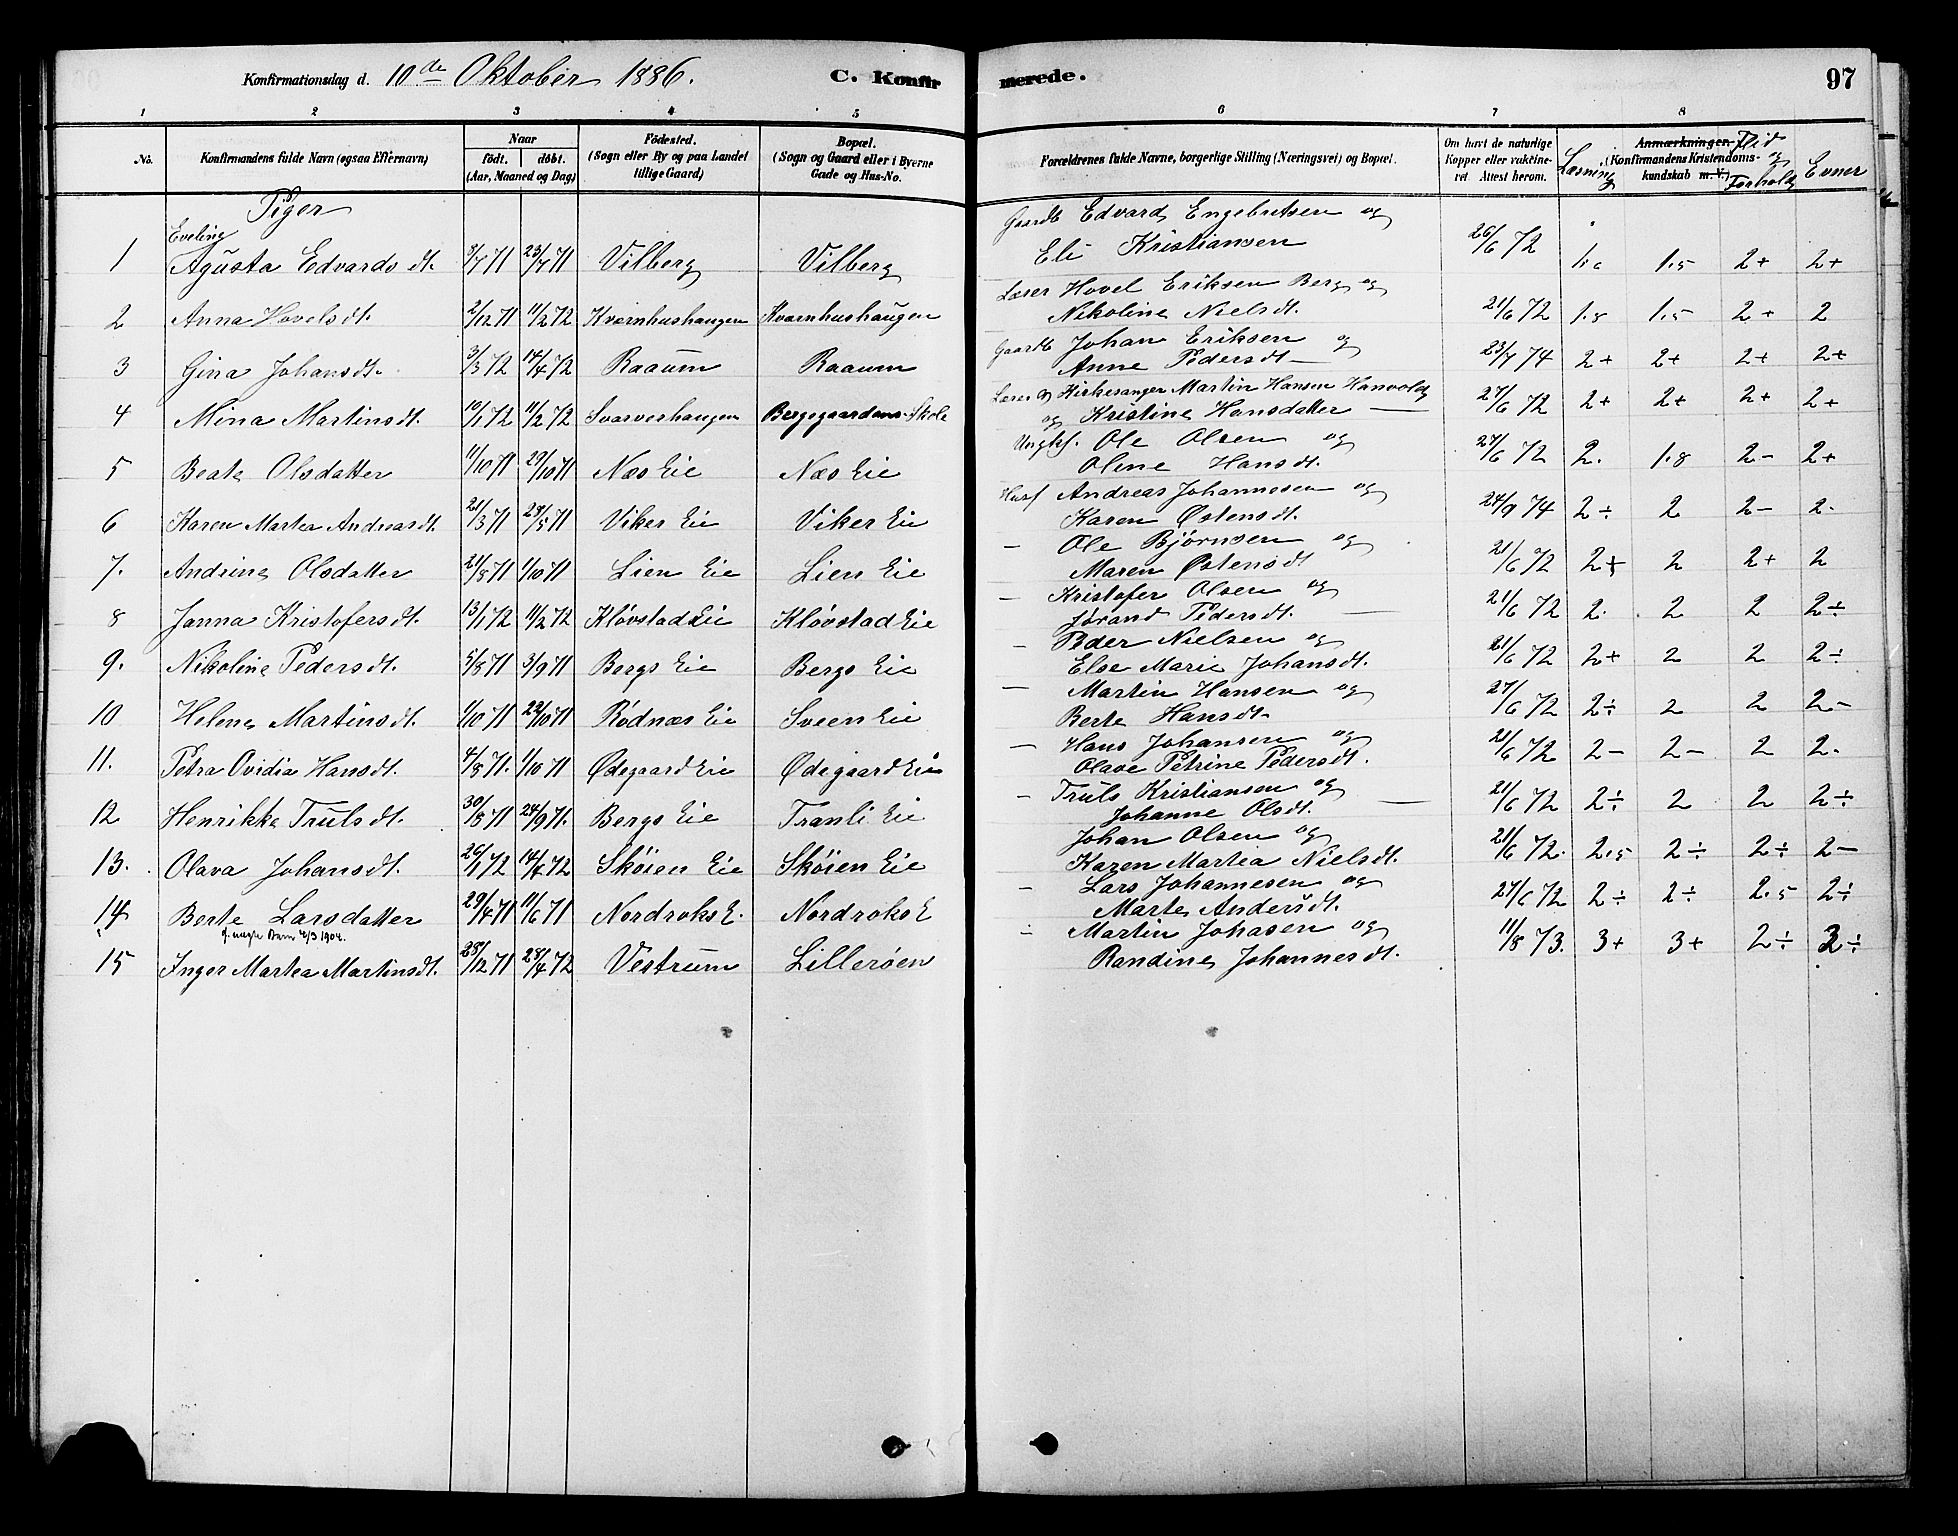 Konfirmationsdag d. 10de Oktober 1886. C. Konfirmerede. 97
1 2 3 4 5 6 7 8
No. Konfirmandens fulde Navn (ogsaa Efternavn) Naar födt. döbt. (Aar, Maaned og Dag) Födested. (Sogn eller By og paa Landet tillige Gaard) Bopæl. (Sogn og Gaard eller i Byerne Gade og Hus-No. Forældrenes fulde Navne, borgerlige Stilling (Næringsvei) og Bopæl. Om havt de naturlige Kopper eller vaktineret Attest herom. Læsning Anmærkninger (Konfirmandens Kristendomskundskab m. V.) Flid og Forhold Evner
Piger
Eveline Gaardb Edvard Engebretsen og
1 Agusta Edvardsdt. 3/7 71 23/7 71 Vilberg Vilberg Eli Kristiansen 26/6 72 1.5 2+ 2+
Lærer Hovel Eriksen Berg og
2 Anna Hovelsdt. 2/12 71 11/2 72 Kværnhushaugen Kværnhushaugen Nikoline Nielsdt. 21/6 72 1.8 1.5 2+ 2
Gaardb Johan Eriksen og
3 Gina Johansdt. 3/3 72 14/4 72 Raaum Raaum Anne Pedersdt 23/7 74 2+ 2+ 2+ 2+
Lærer og Kirkesanger Martin Hansen Hanvold
4 Mina Martinsdt. 10/1 72 11/2 72 Svarveshaugen Bergegaardens Skole og Kristine Hansdatter — 27/6 72 2+ 2+ 2+ 2+
Ole Olsen og
5 Beate Olsdatter 11/10 71 29/10 71 Næs Eie Næs Eie Oline Hansdt. 27/6 72 2. 1.8 2- 2+
Husf Andreas Johannesen og
6 Karen Martea Andreasdt. 21/3 71 28/5 71 Viker Eie Viker Eie Karen Østensdt. 24/9 74 2÷ 2 2- 2.
— Ole Bjørnsen og
7. Andrine Olsdatter 21/8 71 1/10 71 Lien Eie Lien Eie Maren Østensdt 21/6 72 2+ 2 2+ 2
— Kristofer Olsen og
8 Janna Kristofersdt. 13/1 72 11/2 72 Kløvstad Eie Kløvstad Eie Jørand Pedersdt. — 21/6 72 2. 2 2 2÷
— Peder Nielsen og
9. Nikoline Pedersdt. 5/8 71 3/9 71 Bergs Eie Bergs Eie Else Marie Johansdt. 21/6 72 2+ 2 2 2÷
— Martin Hansen og
10 Helene Martinsdt. 1/10 71 29/10 71 Rødnæs Eie Sveen Eie Berte Hansdt 27/6 72 2÷ 2 2 2-
— Hans Johansen og
11. Petra Ovidia Hansdt. 4/8 71. 1/10 71 Ødegaard Eie Ødegaard Eie Olave Petrine Pedersdt. 21/6 72 2- 2- 2 2.
— Truls Kristiansen og
12. Henrikke Trulsdt. 30/8 71 24/9 71. Bergs Eie Tranli Eie Johanne Olsdt. — 21/6 72 2÷ 2 2 2÷
Johan Olsen og
13. Olava Johansdt. 26/1 72 14/4 72 Skøien Eie Skøien Eie Karen Martea Nielsdt. 21/6 72. 2.5 2÷ 2÷ 2-
— Lars Johannesen og
14 Berte Larsdatter 29/4 71 11/6 71 Nordroks E. Nordroks E Marte Andersdt. 27/6 72 2÷ 2÷ 2.5 2÷
Martin Johasen og
15 Inger Martea Martinsdt. 28/12 71 28/4 72 Vestrum Lillerøen Randine Johannesdt. 11/8 73. 3+ 3+ 2÷ 3÷